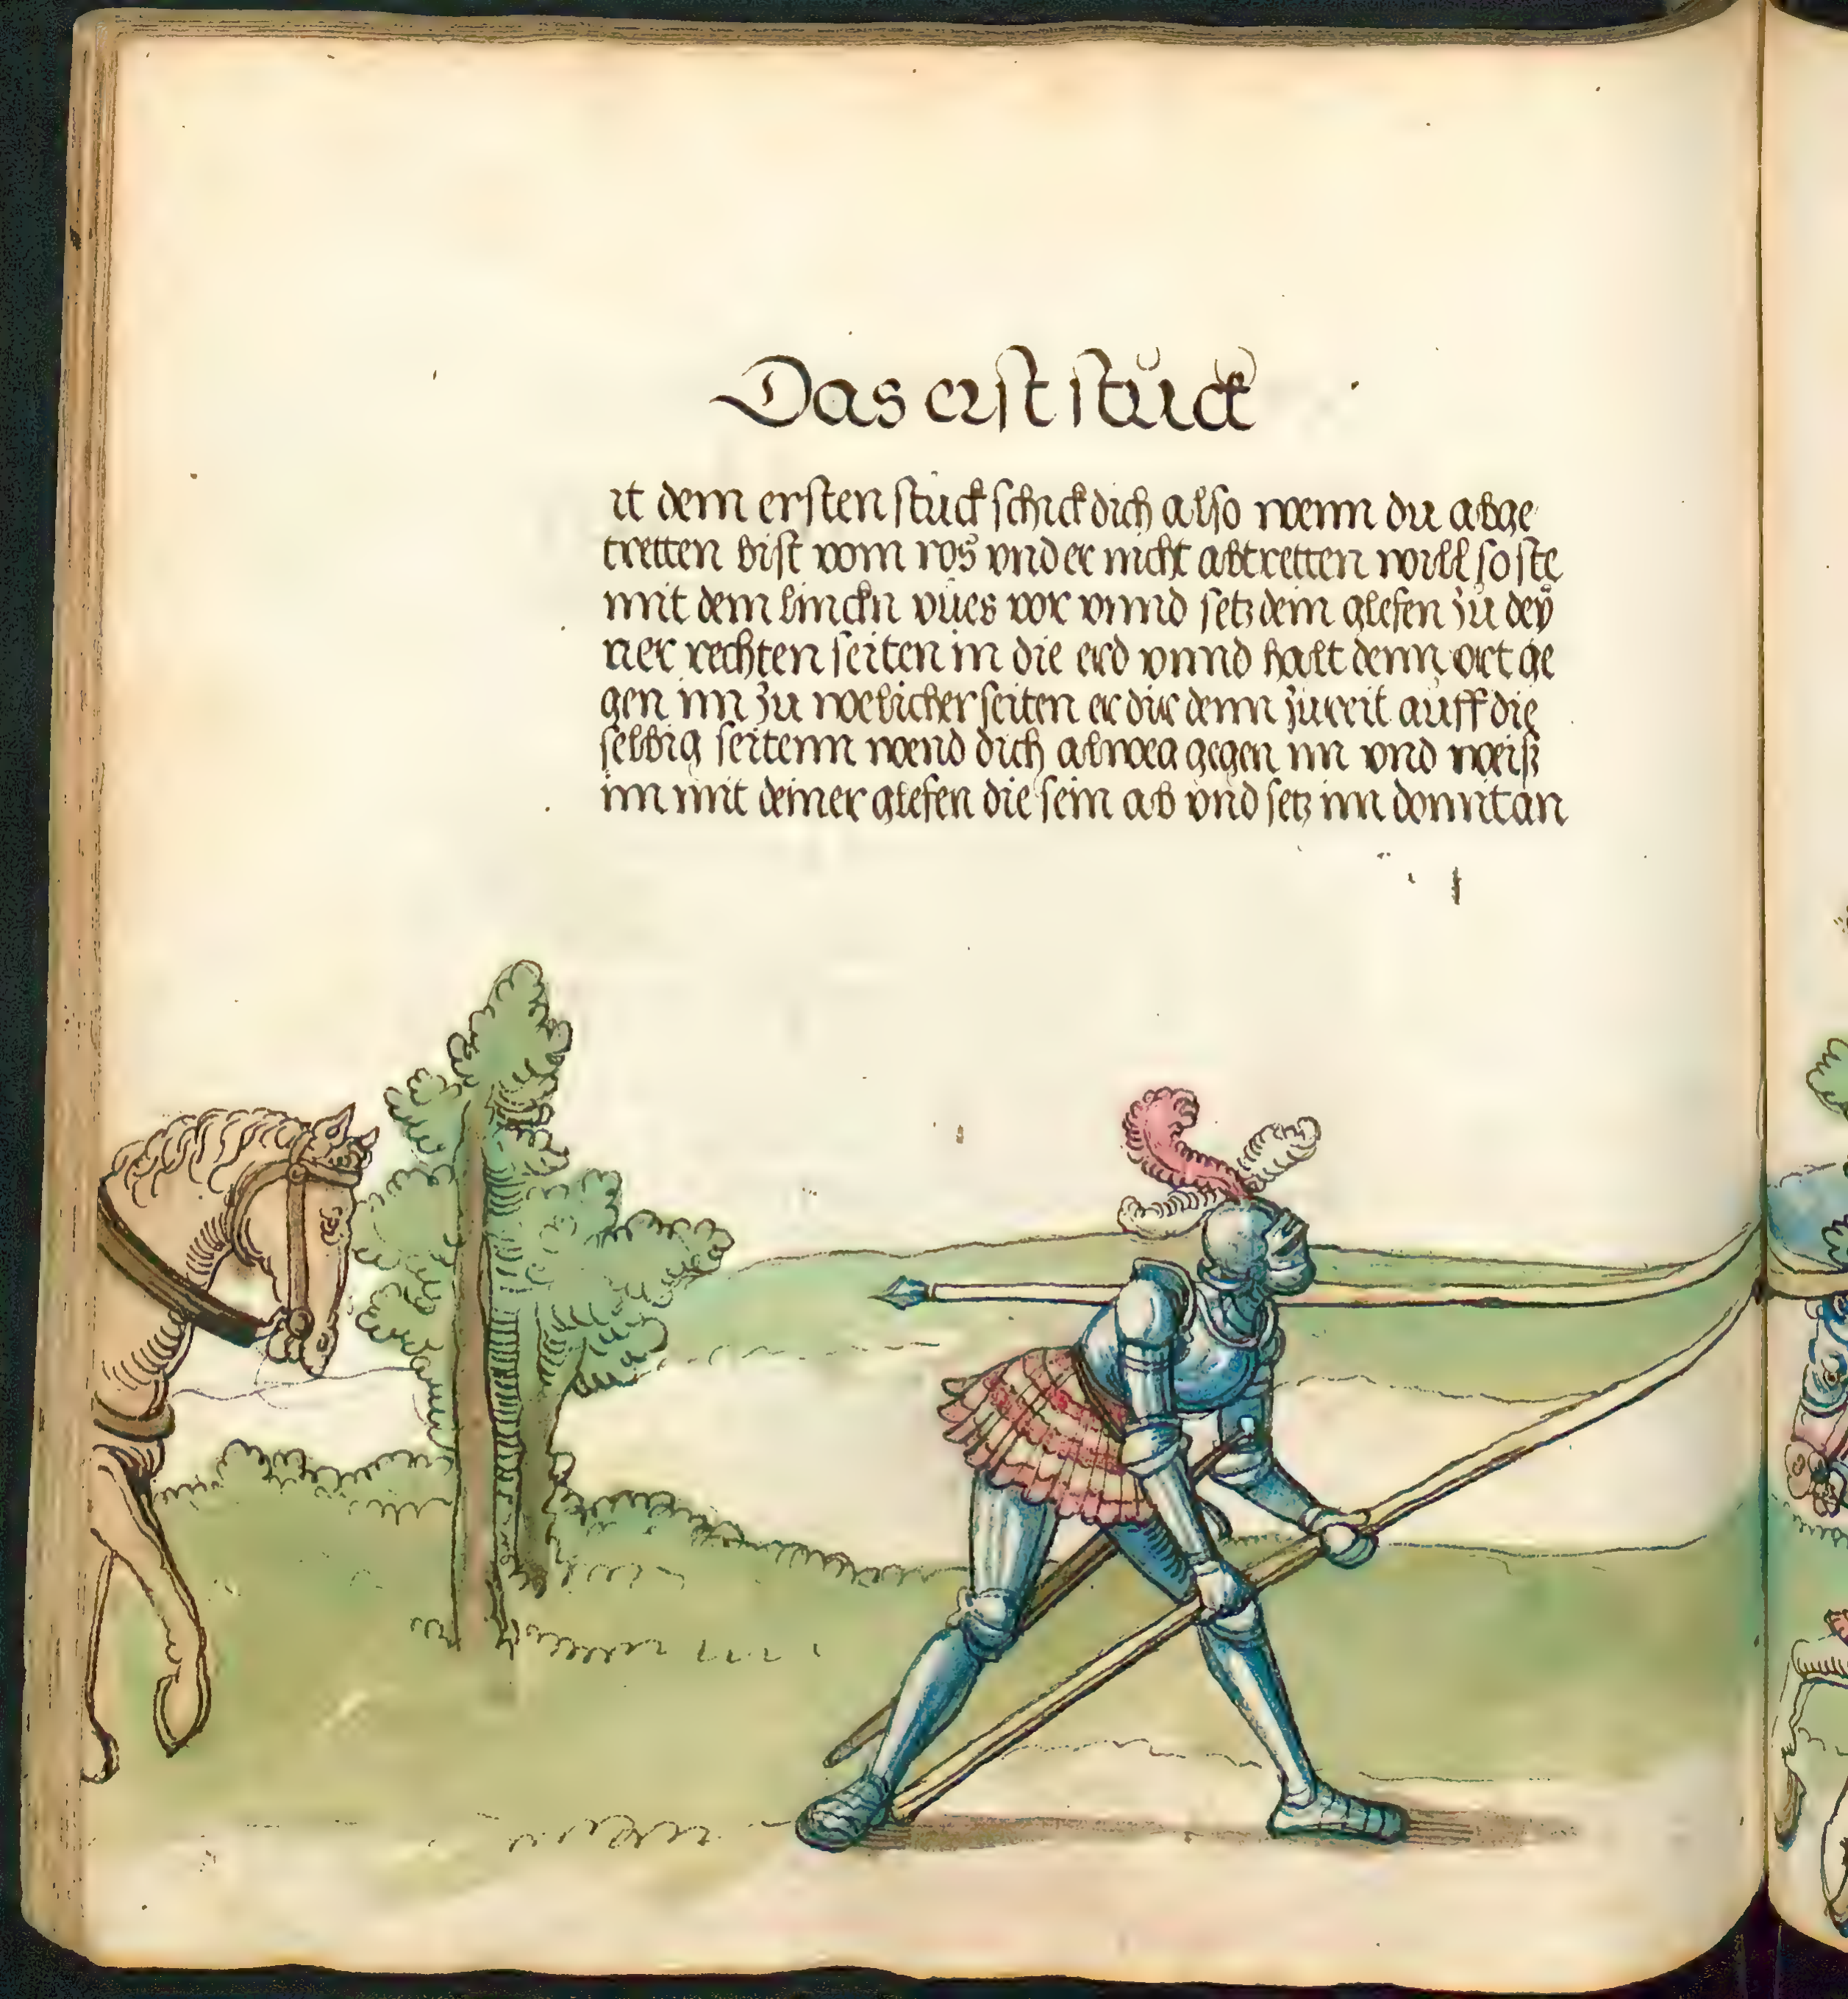 Das erst stuck
it dem ersten stuck schick dich also wenn du abge
tretten bist vom ros vnd er nicht abtretten will so ste
mit dem linckn vües vor vnnd setz dein glefen zu deÿ
ner rechten seiten in die erd vnnd halt denn ort ge
gen im zu welicher seiten er dir denn zureit auff die
selbig seitenn wend dich alweg gegen im vnd weiß
im mit deiner glefen die sein ab vnd setz im domit an